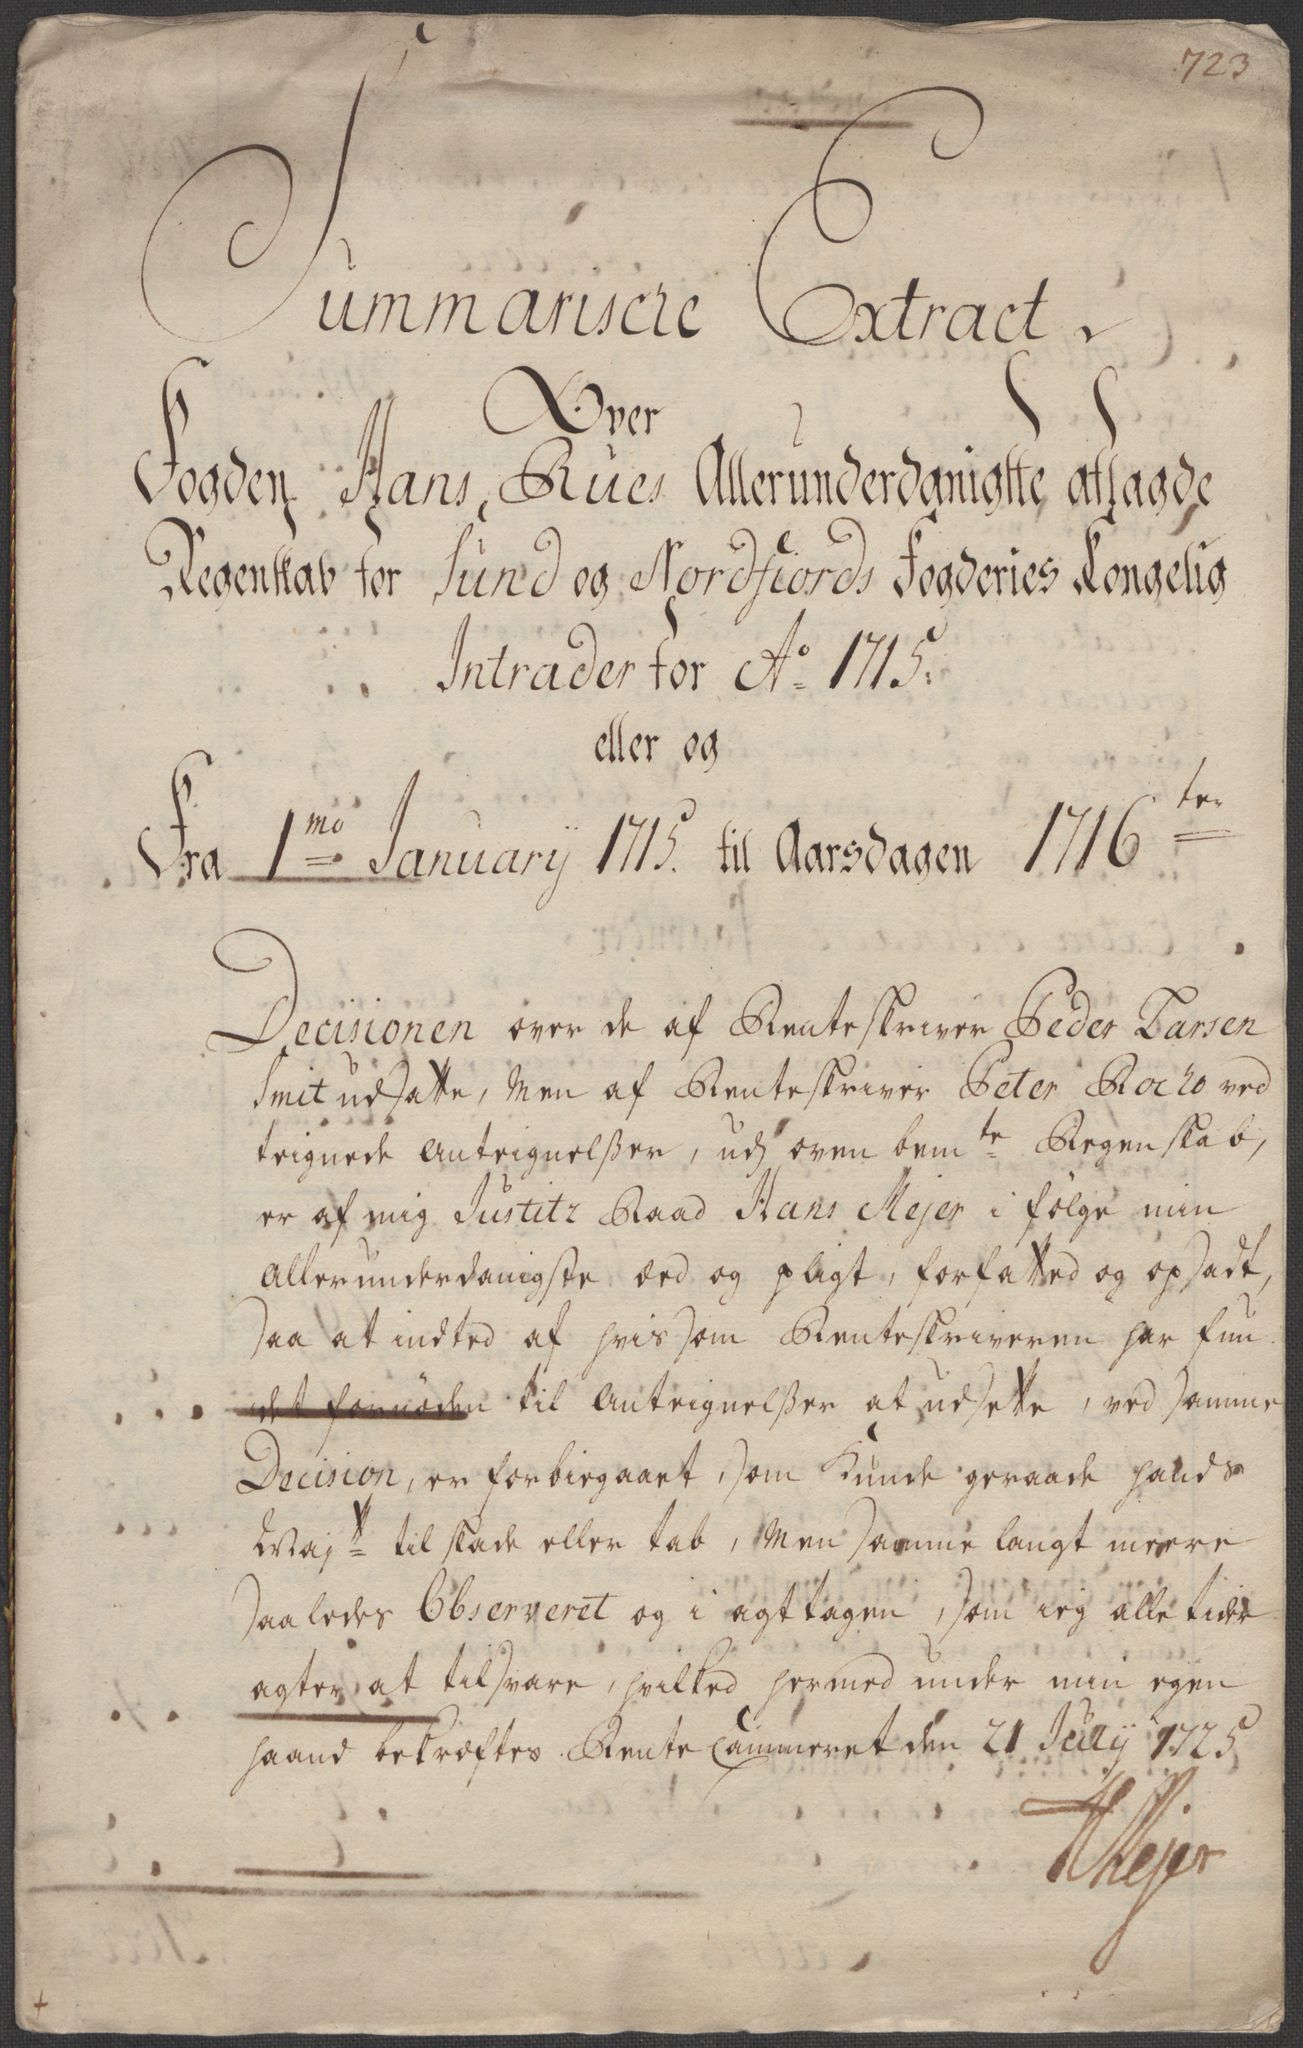 723
Summarische Extract
Over
Fogden Hans Rues Allerunderdanigste aflagde
Regenskab for Sund og Nordfiords Fogderies Kongelig
Intrader for A° 1715.
eller og
Fra 1mo January 1715. til Aarsdagen 1716ter
Decisionen over de af Renteskriver Peder Larsen
Smit udsatte, Men af Renteskriver Peter Rocho ved
teignede Anteignelsser, udj oven bemte Regenskab,
er af mig Justitz Raad Hans Mejer i følge min
allerunderdanigste Eed og pligt, forfatted og opsadt,
saa at indted af hvis som Renteskriveren har fun
det fornøden til Anteignelsser at udsette, ved samme
Decision, er forbiegaaet, som Kunde geraade hands
Maytt til skade eller tab, Men samme langt meere
saaledes Observeret og i agttagen, som ieg alle tider
agter at tilsvare, hvilked hermed under min egen
haand bekræftes. Rente Cammeret den 21 July 1725
HMejer